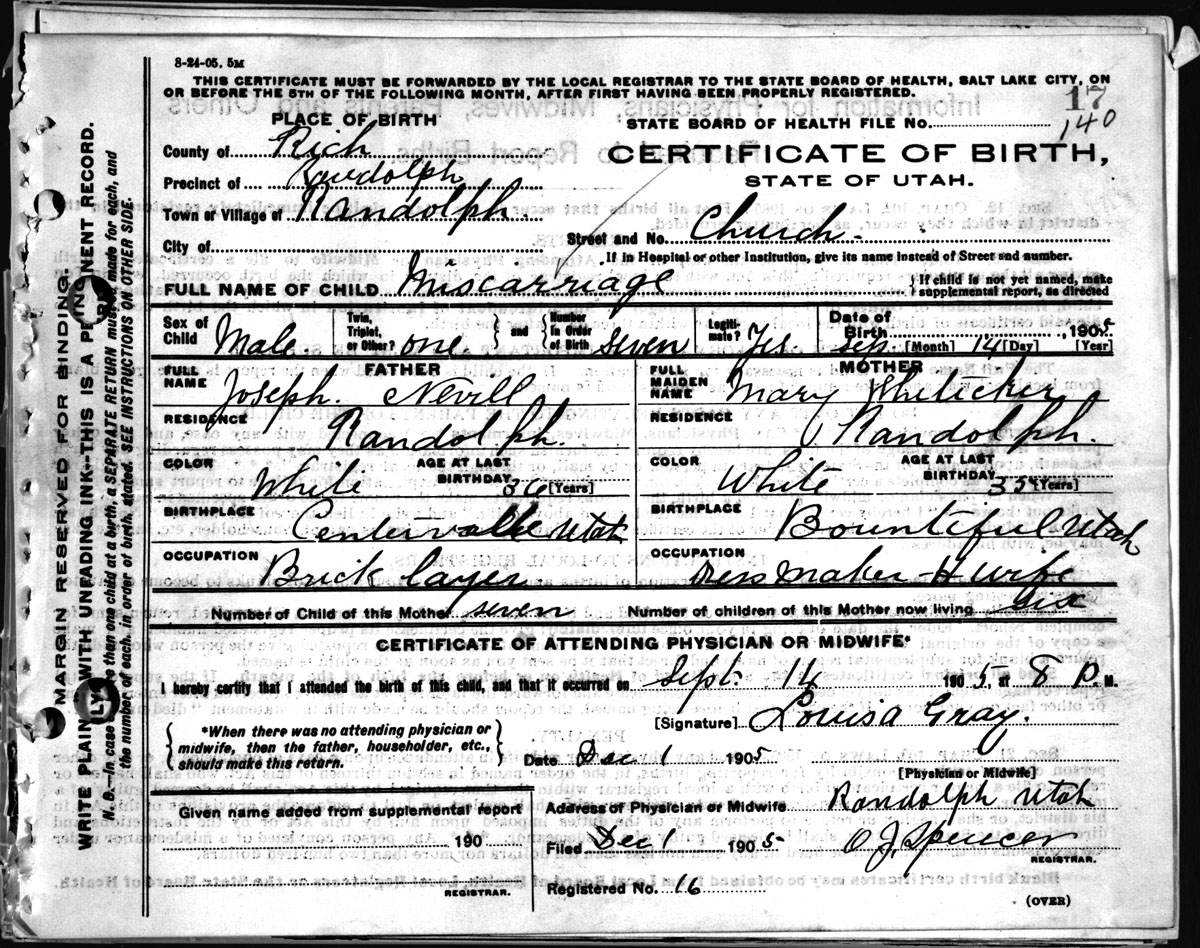 8-24-05. 5M
THIS CERTIFICATE MUST BE FORWARDED BY THE LOCAL REGISTRAR TO THE STATE BOARD OF HEALTH, SALT LAKE CITY, ON
OR BEFORE THE 5TH OF THE FOLLOWING MONTH, AFTER FIRST HAVING BEEN PROPERLY REGISTERED.
17
140
PLACE OF BIRTH
STATE BOARD OF HEALTH FILE No.
County of Rich
CERTIFICATE OF BIRTH,
Precinct of Randolph
STATE OF UTAH.
Town or Village of Randolph
City of
Street and No. Church.
If in Hospital or other Institution, give its name instead of Street and number.
FULL NAME OF CHILD Miscarriage
{If child is not yet named, make
supplemental report, as directed
Sex of Child Male.
Twin, Triplet, or Other? one. } and { Number in Order of Birth seven
Legiti- mate? Yes.
Date of Birth Sep. [Month] 14 [Day], 1905 [Year]
FATHER
FULL NAME Joseph. Nevill
RESIDENCE Randolph.
COLOR White
AGE AT LAST BIRTHDAY 36 [Years]
BIRTHPLACE Centervalle Utah
OCCUPATION Brick layer
MOTHER
FULL MAIDEN NAME Mary
RESIDENCE Randolph.
COLOR White
AGE AT LAST BIRTHDAY 35 [Years]
BIRTHPLACE Bountiful Utah
OCCUPATION Dress maker H wife
Number of Child of this Mother seven
Number of children of this Mother now living six
CERTIFICATE OF ATTENDING PHYSICIAN OR MIDWIFE*
I hereby certify that I attended the birth of this child, and that it occurred on Sept. 14 1905, at 8 P. M.
{*When there was no attending physician or
midwife, then the father, householder, etc.,
should make this return.}
[Signature] Louisa Gray.
Date Dec 1 1905
[Physician or Midwife]
Given name added from supplemental report
190
REGISTRAR.
Address of Physician or Midwife Randolph Utah
Filed Dec 1 1905 O J. Spencer
REGISTRAR.
Registered No. 16
(OVER)
MARGIN RESERVED FOR BINDING.
WRITE PLAINLY WITH UNFADING INK--THIS IS A PERMANENT RECORD.
N.B.--In case of more than one child at a birth, a SEPARATE RETURN must be made for each, and
the number of each, in order of birth, stated. SEE INSTRUCTIONS ON OTHER SIDE.